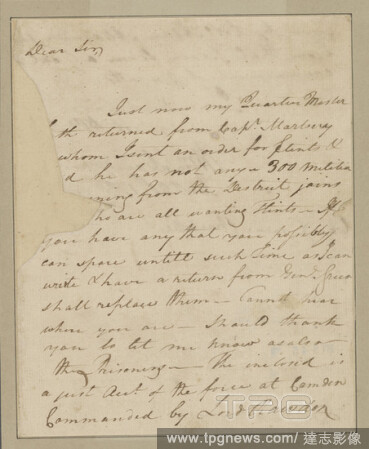 Dear Sir,
Just now my Quarter Master
returned from Capt. Marbury
whom I sent an order for flints &
he has not any & 300 militia
from the District joins
who are all wanting flints - If
you have any that you possibly
can spare untill such time as I can
write & have a return from Genl. Green
shall replace them - Cannot hear
where you are - Should thank
you to let me know as also
the Prisoners - The inclosed is
a just Act. of the force at Camden
Commanded by Lord
TPG
www.tpgnews.com / 達志影像